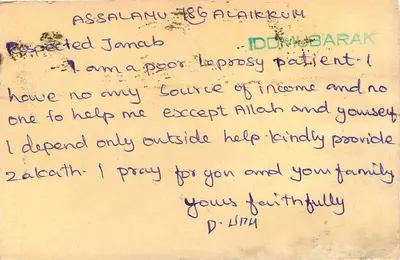 ASSALAMU 786 ALAIKKUM
Respected Janab
IDDMUBARAK
I am a poor Leprosy patient. I
have no any source of income and no
one to help me except Allah and youself.
I depend only outside help. kindly provide
zakath. I pray for you and your family
yours faithfully